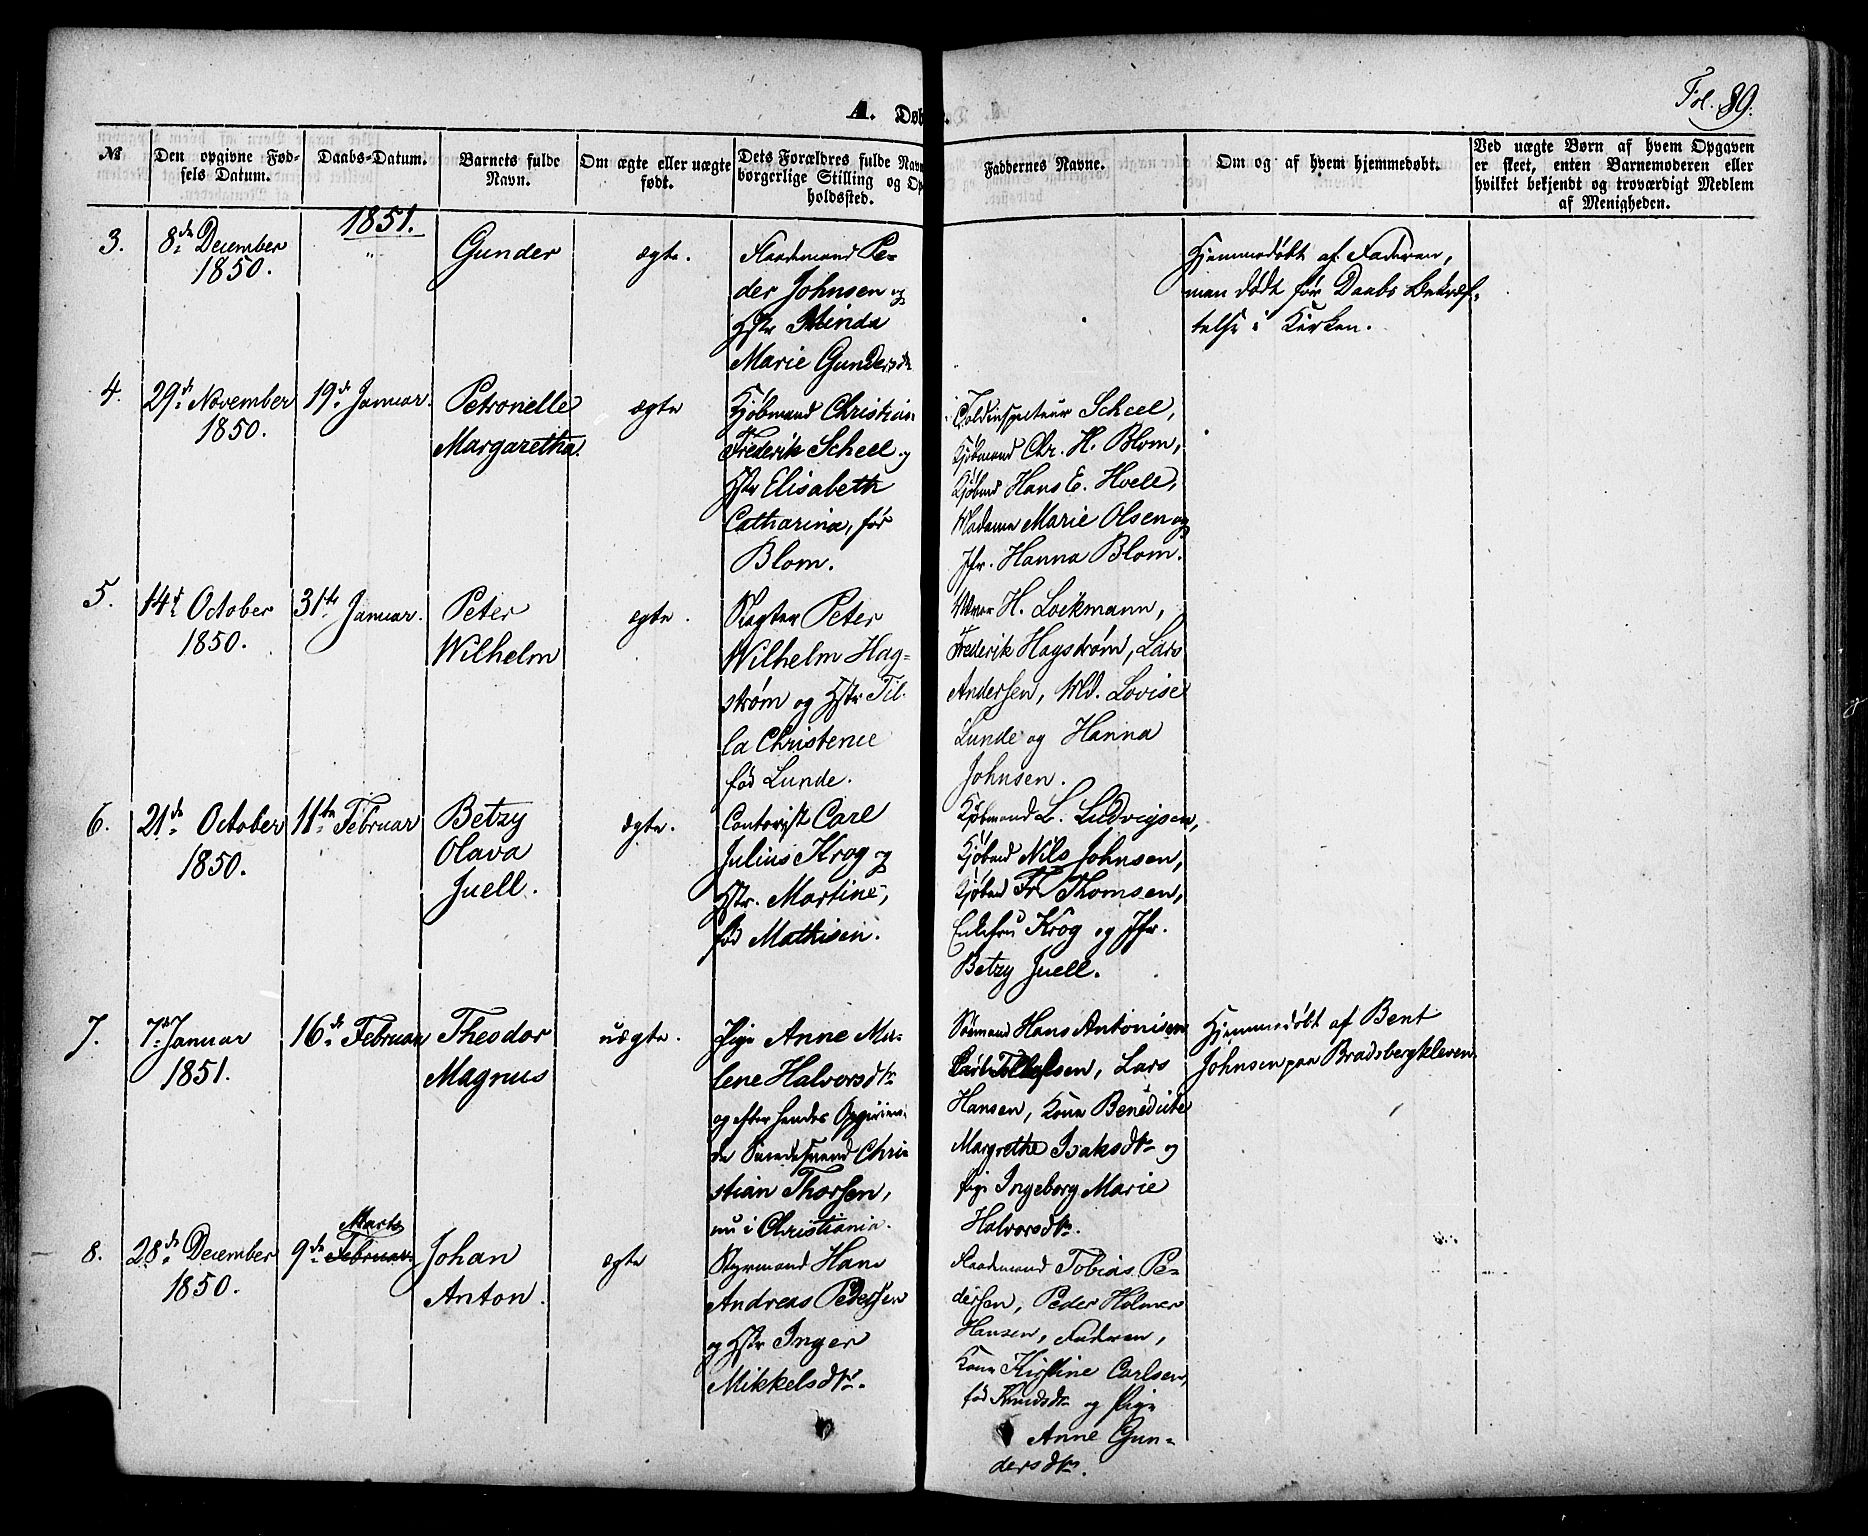 Fol. 89.
A. Døb
№
Den opgivne Fød-
sels Datum.
Daabs-Datum.
Barnets fulde
Navn.
Om ægte eller uægte
født.
Dets Forældres fulde Navn
borgerlige Stilling og Op
holdssted.
Faddernes Navne.
Om og af hvem hjemmedøbt.
Ved uægte Børn af hvem Opgaven
er skeet, enten Barnemoderen eller
hvilket bekjendt og troværdigt Medlem
af Menigheden.
1851.
3.
8de December
1850.
"
Gunder
ægte.
Pe-
der Johnsen og
Hstr Minda
Marie Gundersdr
Hjemmedøbt af Faderen,
men død før Daabs Bekræf-
telse i Kirken.
4.
29de November
1850.
19de Januar.
Petronelle
Margaretha.
ægte
Kjøbmand Christian
Frederik Scheel og
Hstr Elisabeth
Catharina, før
Blom.
Toldinspecteur Scheel,
Kjøbmand Chr. H. Blom,
Kjøbmd Hans E. Hoell,
Madame Marie Olsen og
Jfr. Hanna Blom.
5.
14de October
1850.
31te Januar.
Peter
Wilhelm
ægte.
Slagter Peter
Wilhelm Hag-
strøm og Hstr Til-
la Christence
fød Lunde.
H. Lockmann,
Frederik Hagstrøm, Lars
Andersen, Md. Lovise
Lunde og Hanna
Johnsen.
6.
21de October
1850.
11te Februar
Betzy
Olava
Juell.
ægte.
Contorist Carl
Julius Krog og
Hstr. Martine,
fød Mathisen.
Kjøbmand L. Ludvigsen,
Kjøbmd Nils Johnsen,
Kjøbmd Fr. Thomsen,
Enkefru Krog og Jfr.
Betzy Juell.
7.
7de Januar
1851.
16de Februar
Theodor
Magnus
uægte.
Pige Anne Ma-
lene Halvorsdtr
og efter hendes Opgiven-
de Chri-
stian Thorsen,
nu i Christiania.
Sømand Hans Antonisen
Tollefsen, Lars
Hansen, Kone Benedicte
Margrethe Isaksdtr og
Pige Ingeborg Marie
Halvorsdtr.
Hjemmedøbt af Bent
Johnsen paa Bradsbergkleven
8.
28de December
1850.
Marts
9de Februar
Johan
Anton.
ægte
Styrmand Hans
Andreas Pedersen
og Hstr Inger
Mikkelsdtr.
Tobias Pe-
dersen, Peder Holmer
Hansen, Faderen,
Kone Kirstine Carlsen,
fød Knudsdtr og Pige
Anne Gun-
dersdtr.